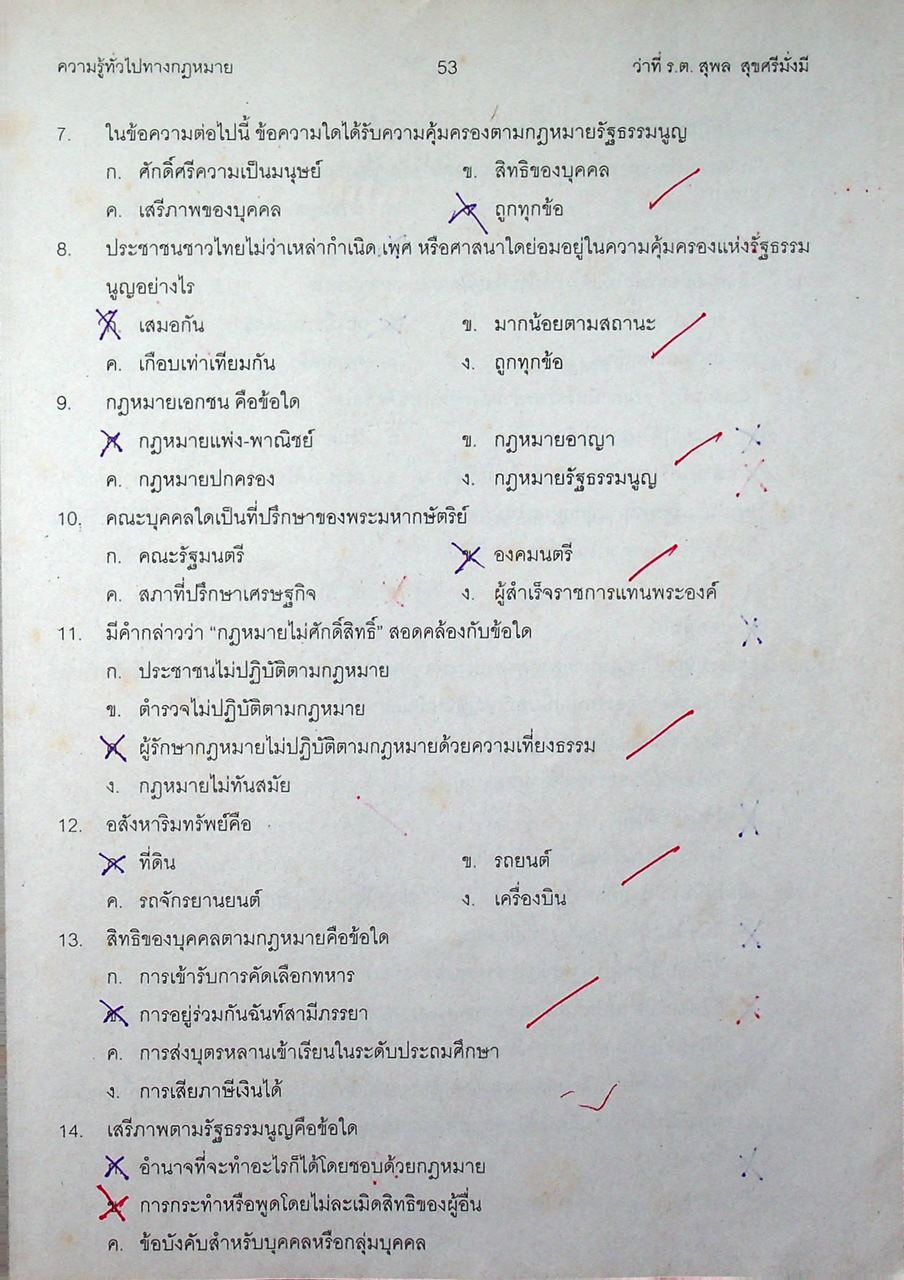 ความรู้ทั่วไปทางกฎหมาย 53 ว่าที่ ร.ต. สุพล สุขศรีมั่งมี
7. ในข้อความต่อไปนี้ ข้อความใดได้รับความคุ้มครองตามกฎหมายรัฐธรรมนูญ
ก. ศักดิ์ศรีความเป็นมนุษย์ ข. สิทธิของบุคคล
ค. เสรีภาพของบุคคล ง. ถูกทุกข้อ
8. ประชาชนชาวไทยไม่ว่าเหล่ากำเนิด เพศ หรือศาสนาใดย่อมอยู่ในความคุ้มครองแห่งรัฐธรรม
นูญอย่างไร
ก. เสมอกัน ข. มากน้อยตามสถานะ
ค. เกือบเท่าเทียมกัน ง. ถูกทุกข้อ
9. กฎหมายเอกชน คือข้อใด
ก. กฎหมายแพ่ง-พาณิชย์ ข. กฎหมายอาญา
ค. กฎหมายปกครอง ง. กฎหมายรัฐธรรมนูญ
10. คณะบุคคลใดเป็นที่ปรึกษาของพระมหากษัตริย์
ก. คณะรัฐมนตรี ข. องคมนตรี
ค. สภาที่ปรึกษาเศรษฐกิจ ง. ผู้สำเร็จราชการแทนพระองค์
11. มีคำกล่าวว่า “กฎหมายไม่ศักดิ์สิทธิ์” สอดคล้องกับข้อใด
ก. ประชาชนไม่ปฏิบัติตามกฎหมาย
ข. ตำรวจไม่ปฏิบัติตามกฎหมาย
ค. ผู้รักษากฎหมายไม่ปฏิบัติตามกฎหมายด้วยความเที่ยงธรรม
ง. กฎหมายไม่ทันสมัย
12. อสังหาริมทรัพย์คือ
ก. ที่ดิน ข. รถยนต์
ค. รถจักรยานยนต์ ง. เครื่องบิน
13. สิทธิของบุคคลตามกฎหมายคือข้อใด
ก. การเข้ารับการคัดเลือกทหาร
ข. การอยู่ร่วมกันฉันท์สามีภรรยา
ค. การส่งบุตรหลานเข้าเรียนในระดับประถมศึกษา
ง. การเสียภาษีเงินได้
14. เสรีภาพตามรัฐธรรมนูญคือข้อใด
ก. อำนาจที่จะทำอะไรก็ได้โดยชอบด้วยกฎหมาย
ข. การกระทำหรือพูดโดยไม่ละเมิดสิทธิของผู้อื่น
ค. ข้อบังคับสำหรับบุคคลหรือกลุ่มบุคคล